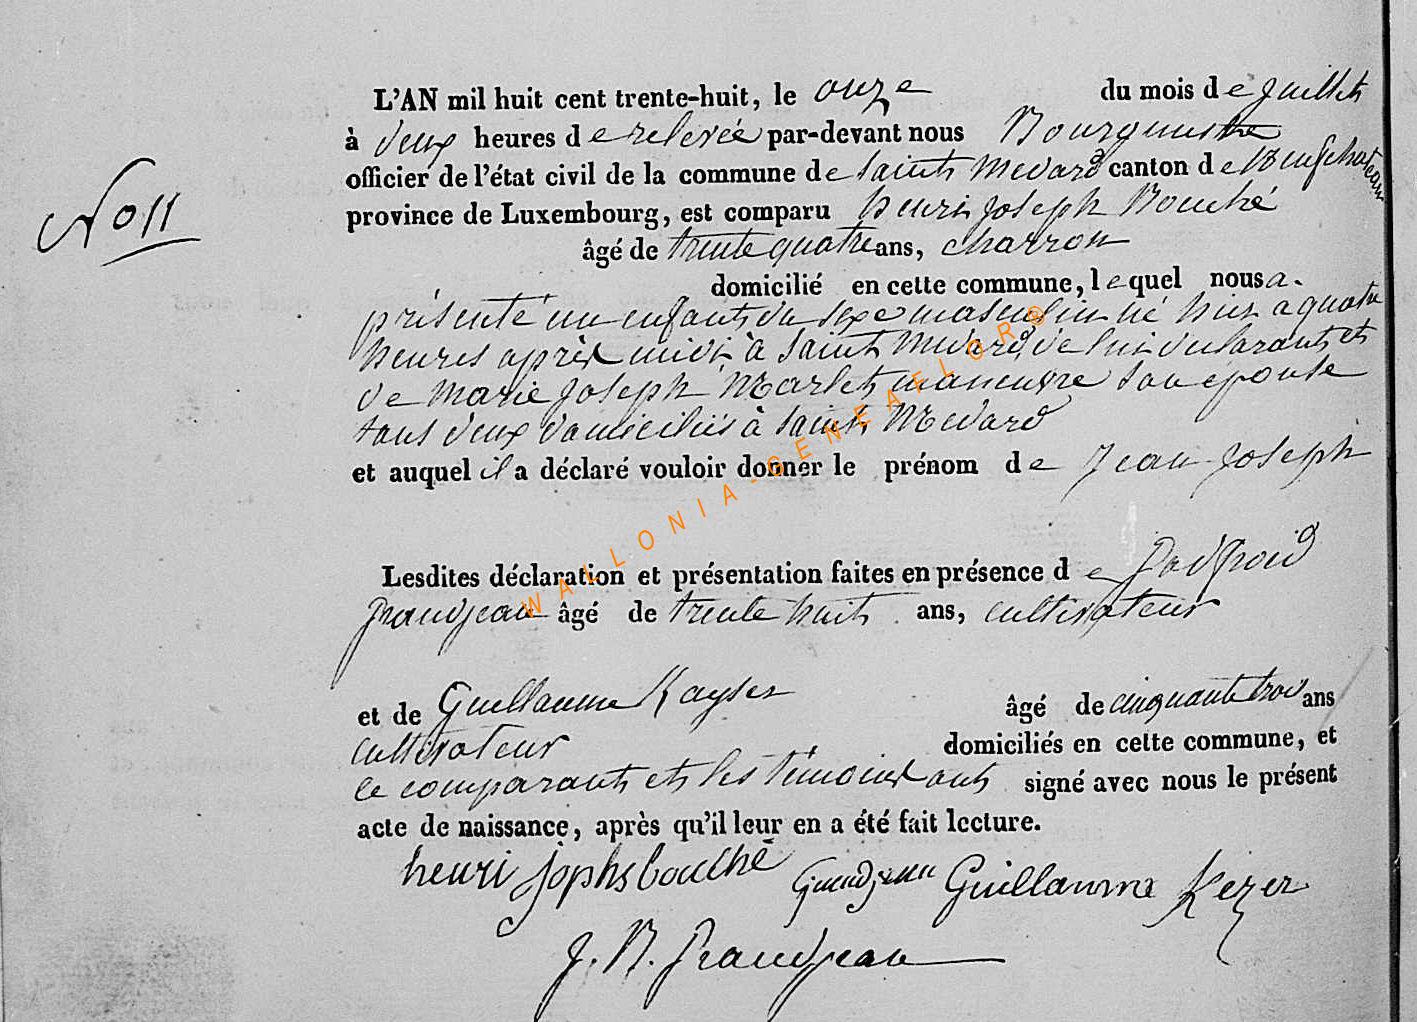 No 11
L'AN mil huit cent trente-huit, le onze du mois de juillet
à deux heures de relevée par-devant nous Bourgmestre
officier de l'état civil de la commune de Saint Medard canton de Neufchateau
province de Luxembourg, est comparu henri joseph Bouché
âgé de trente quatre ans, charron
domicilié en cette commune, lequel nous a
présenté un enfant du sexe masculin né hier a quatre
heures après midi à Saint Medard, de lui declarant et
de Marie Joseph Marlet maneuvre son epouse
tous deux domiciliés à Saint Medard
et auquel il a déclaré vouloir donner le prénom de Jean Joseph
Lesdites déclaration et présentation faites en présence de
grandjean âgé de trente huit ans, cultivateur
et de Guillaume Kayser âgé de cinquante trois ans
cultivateur domiciliés en cette commune, et
le comparant et les témoins ont signé avec nous le présent
acte de naissance, après qu'il leur en a été fait lecture.
henri jophs bouché Grandjean Guillaume Kezer
J. B. Grandjean
WALLONIA-GENEAFLOR®